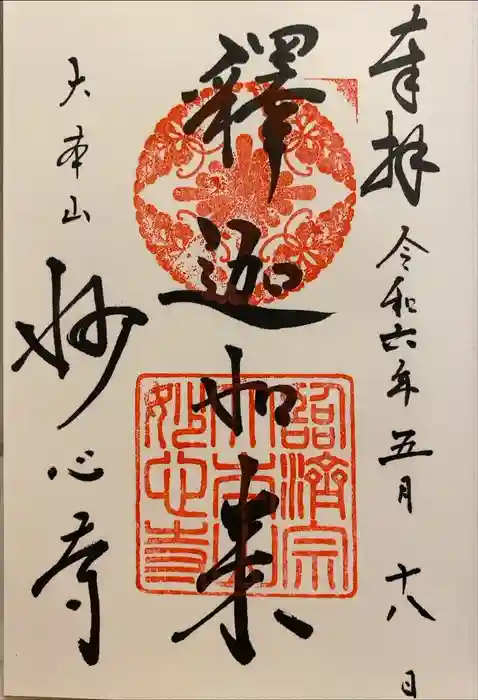 奉拝
令和六年五月十八日
釋迦如来
臨済宗
大本山
妙心寺
大本山
妙心寺